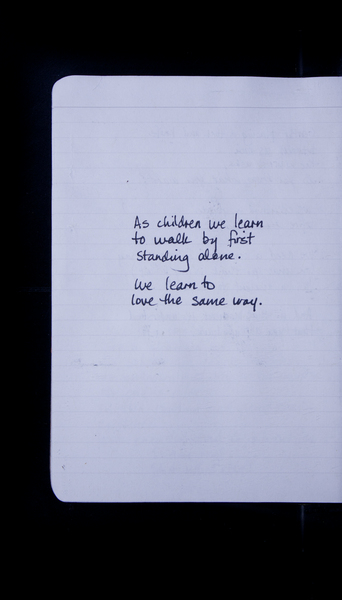 As children we learn
to walk by first
standing alone.
We learn to
love the same way.